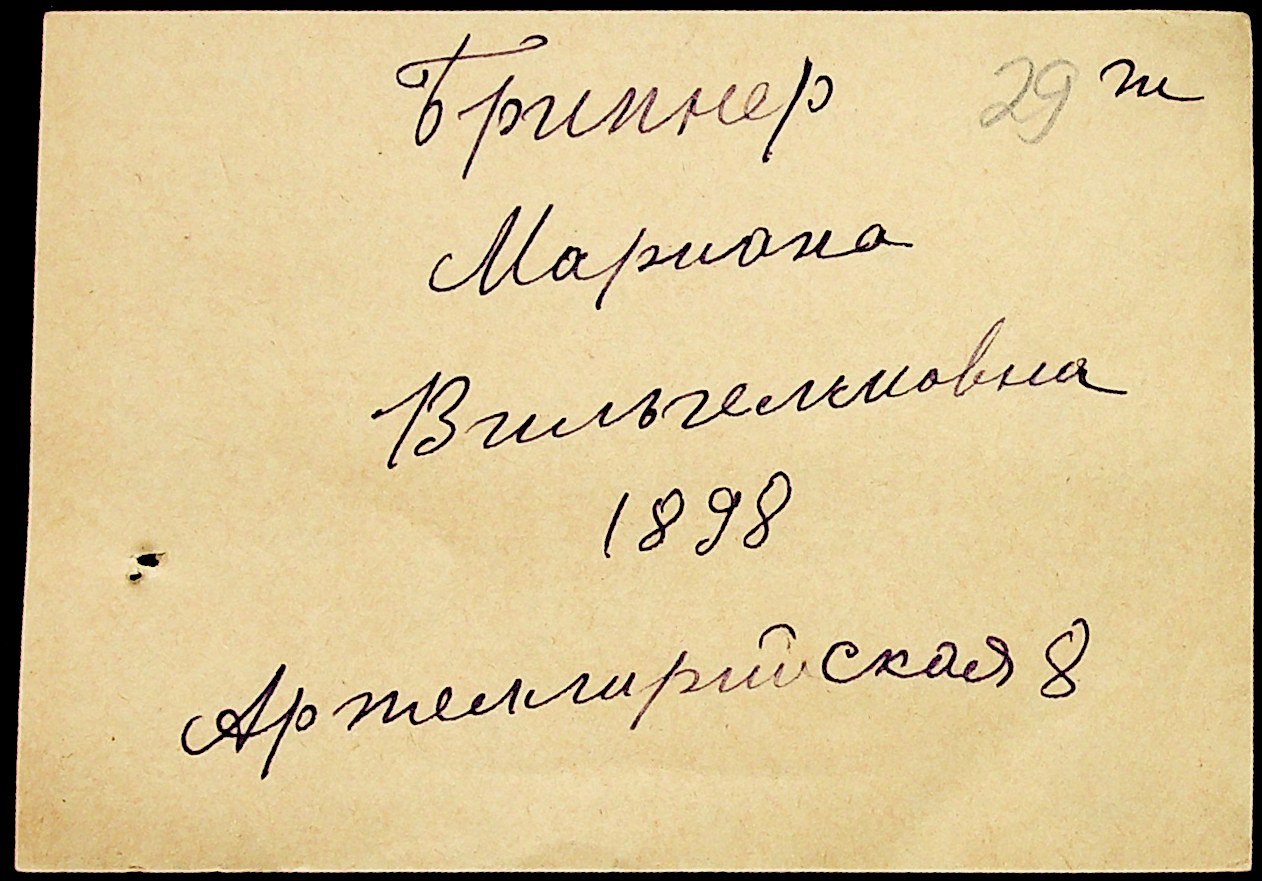 Бриннер 29 т
Мариана
Вильгельмовна
1898
Артеллирийская 8